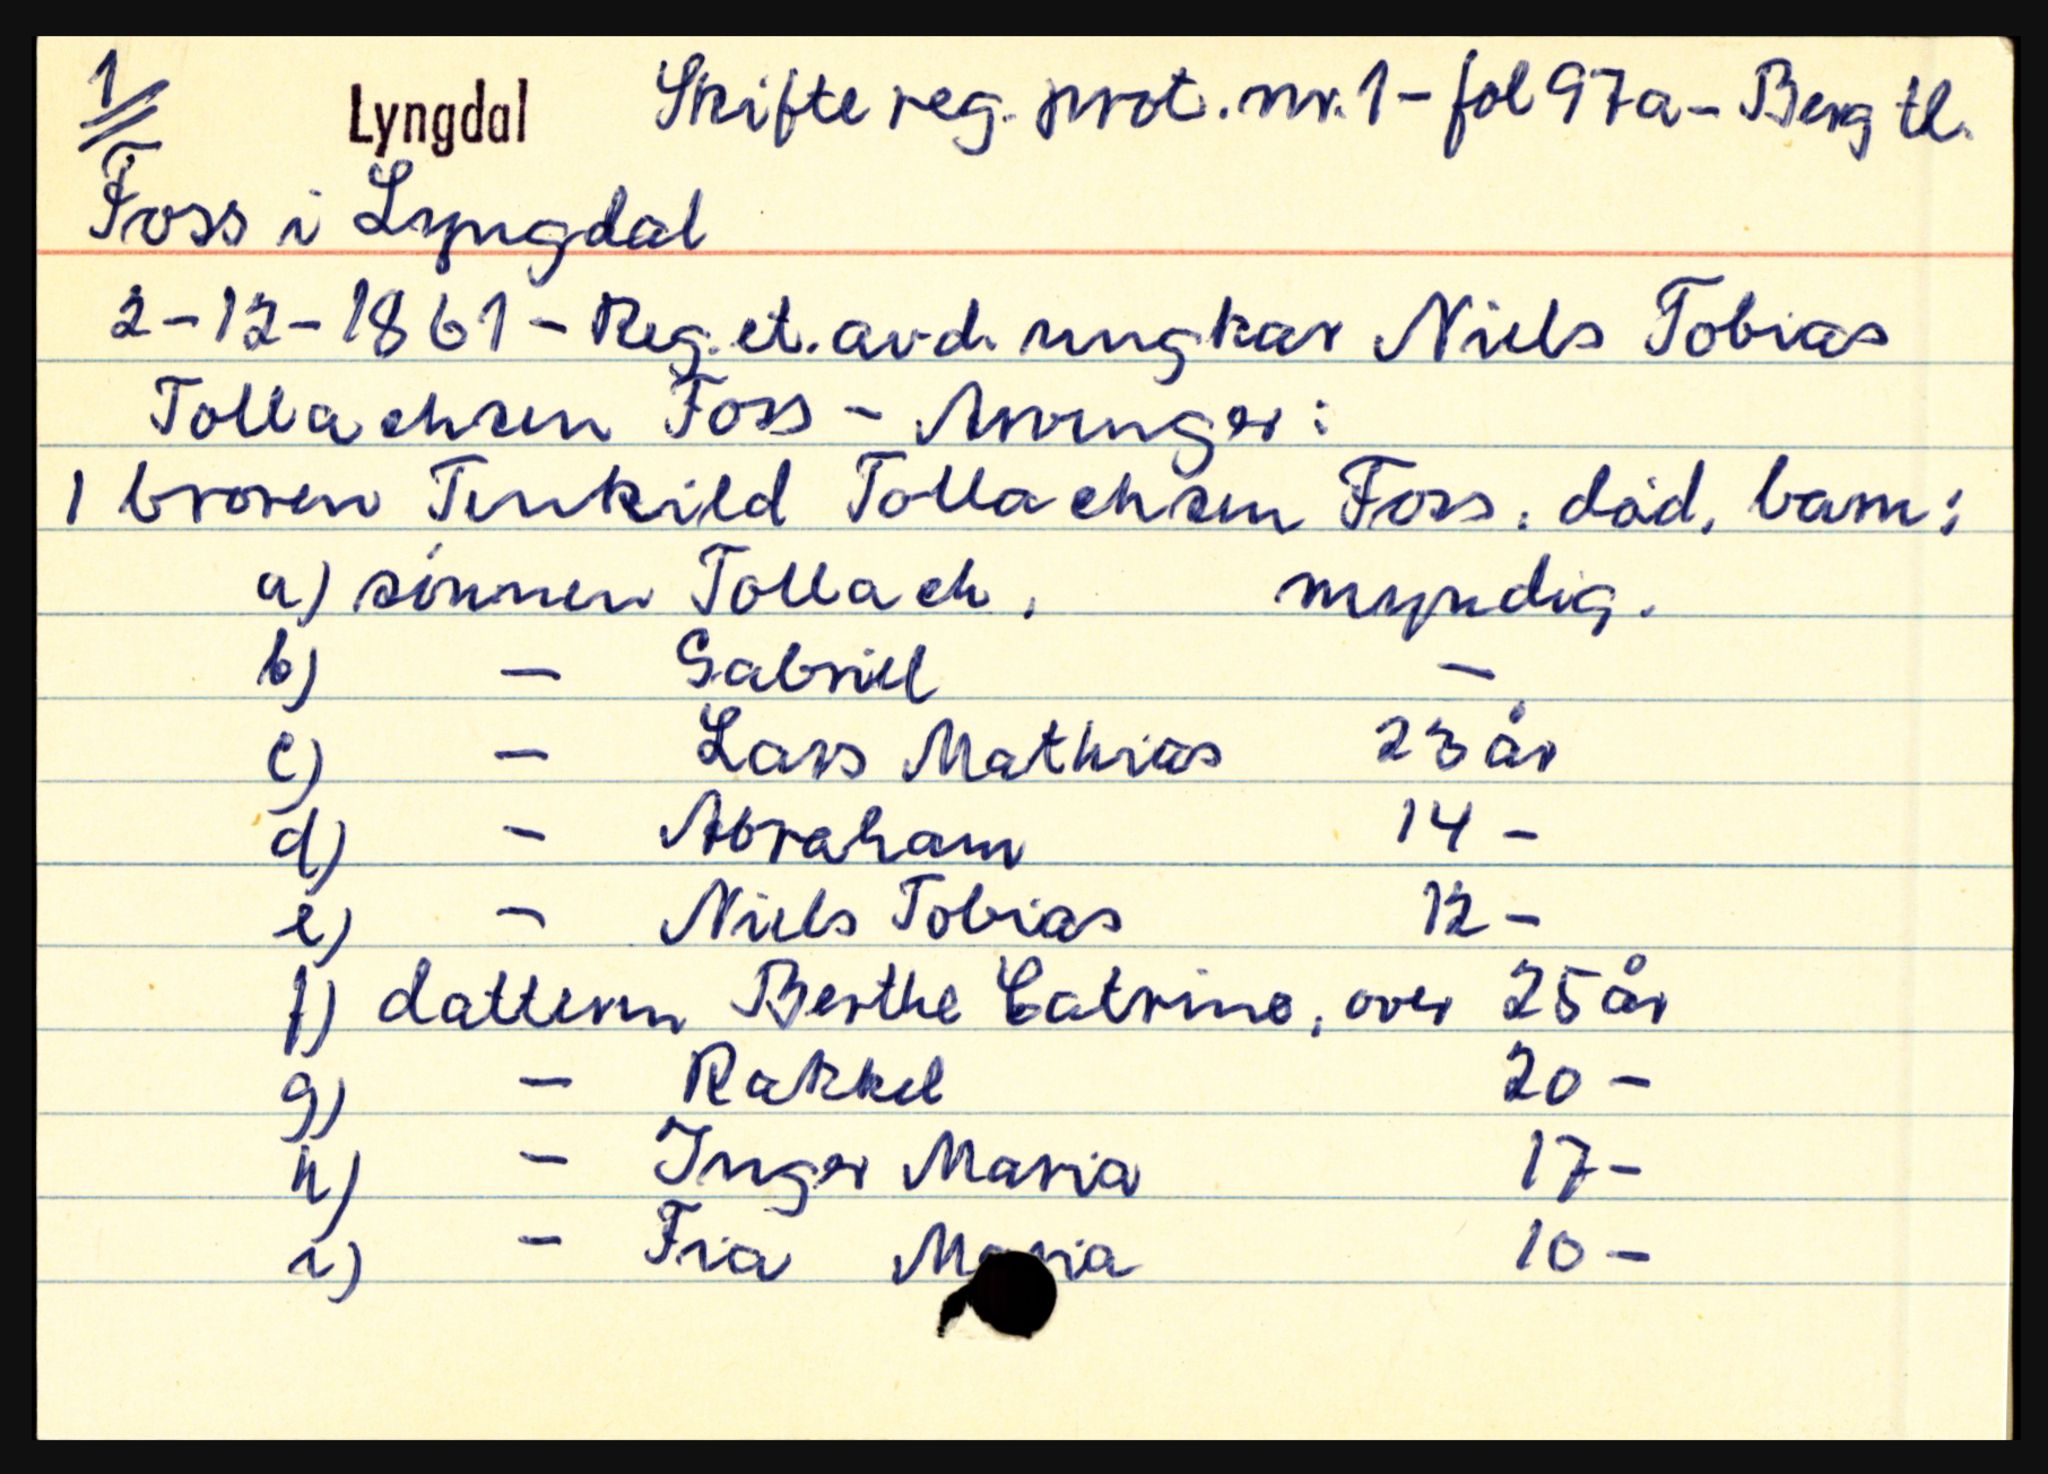 1 Lyngdal Skifte reg. prot. nr. 1 - fol 97a - Berg tl.
Foss i Lyngdal
2-12-1861 - Reg. et. avd. ungkar Niels Tobias
Tollachsen Foss - Arvinger:
1 broren Terkild Tollachsen Foss. död. barn:
a) sönnen Tollach, myndig.
b) - Gabriel -
c) - Lars Mathias 23 år
d) - Abraham 14 -
e) - Niels Tobias 12 -
f) datteren Berthe Catrine, over 25 år
g) - Rakkel 20 -
h) - Inger Maria 17 -
i) - Fria Maria 10 -